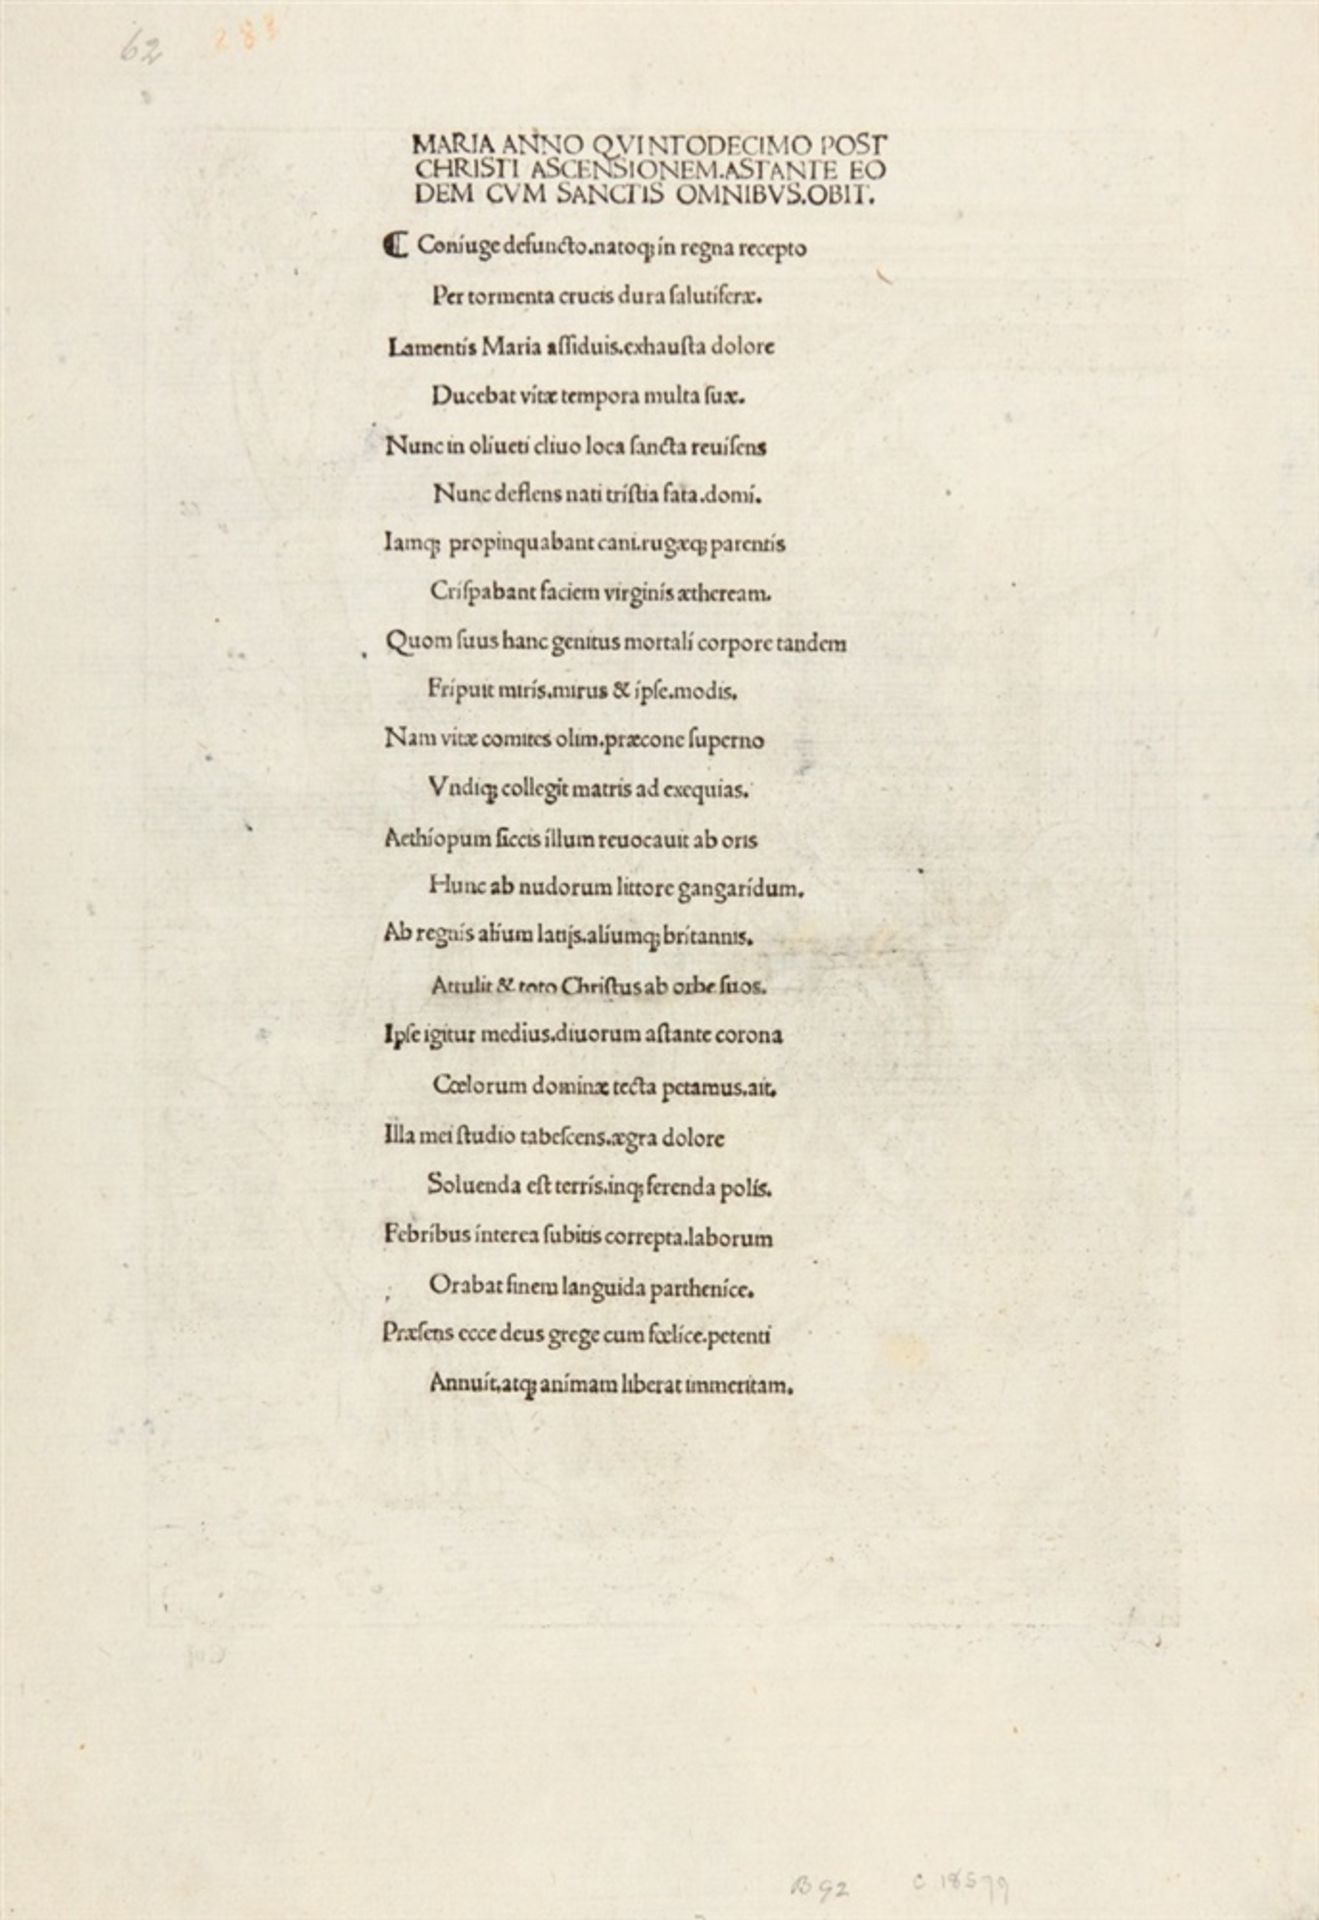 62 283
MARIA ANNO QVINTODECIMO POST
CHRISTI ASCENSIONEM.ASTANTE EO
DEM CVM SANCTIS OMNIBVS.OBIT.
⸿ Coniuge defuncto.natoq; in regna recepto
Per tormenta crucis dura ſalutiferæ.
Lamentis Maria aſſiduis.exhauſta dolore
Ducebat vitæ tempora multa ſuæ.
Nunc in oliueti cliuo loca ſancta reuiſens
Nunc deflens nati triſtia fata.domi.
Iamq; propinquabant cani.rugæq; parentis
Criſpabant faciem virginis ætheream.
Quom ſuus hanc genitus mortali corpore tandem
Eripuit miris.mirus & ipſe.modis.
Nam vitæ comites olim.præcone ſuperno
Vndiq; collegit matris ad exequias.
Aethiopum ſiccis illum reuocauit ab oris
Hunc ab nudorum littore gangaridum.
Ab regnis alium latijs.aliumq; britannis.
Attulit & toto Chriſtus ab orbe ſuos.
Ipſe igitur medius.diuorum aſtante corona
Cœlorum dominæ tecta petamus.ait.
Illa mei ſtudio tabeſcens.ægra dolore
Soluenda eſt terris.inq; ferenda polis.
Febribus interea ſubitis correpta.laborum
Orabat finem languida parthenice.
Præſens ecce deus grege cum fœlice.petenti
Annuit.atq; animam liberat immeritam.
B 92 C 18579